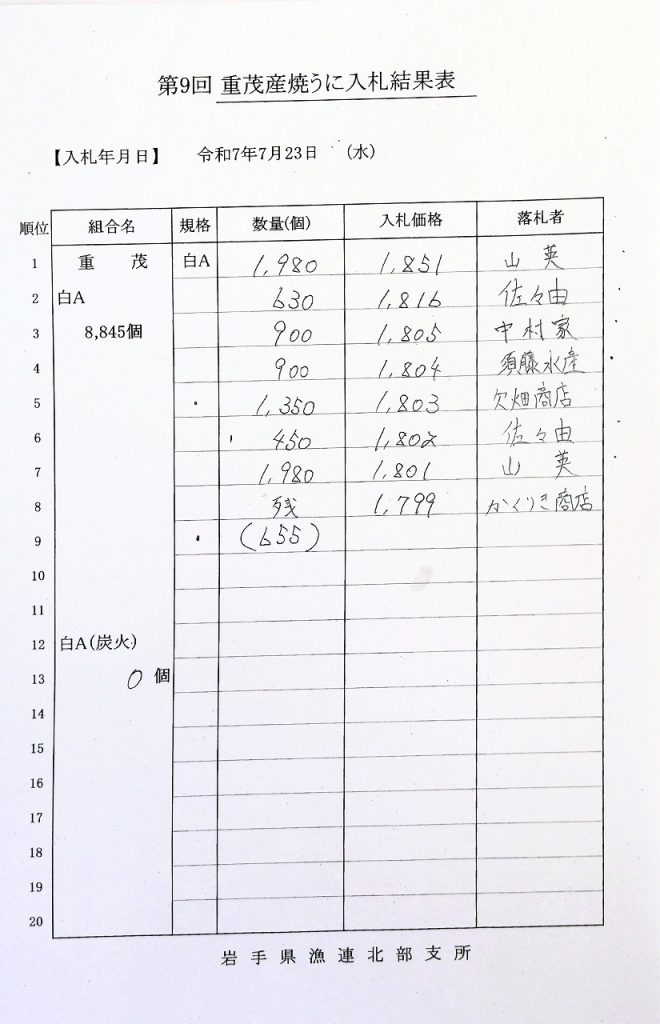 第9回 重茂産焼うに入札結果表
【入札年月日】 令和7年7月23日 (水)
順位 組合名 規格 数量(個) 入札価格 落札者
1 重茂 白A 1,980 1,851 山英
2 白A 630 1,816 佐々由
3 8,845個 900 1,805 中村家
4 900 1,804 須藤水産
5 1,350 1,803 欠畑商店
6 450 1,802 佐々由
7 1,980 1,801 山英
8 残 1,799 かくりき商店
9 (655)
10
11
12 白A(炭火)
13 0個
14
15
16
17
18
19
20
岩手県漁連北部支所